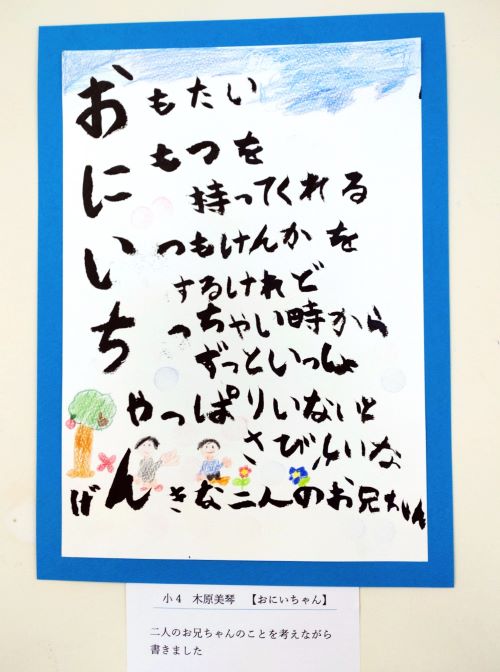 おもたい
にもつを
持ってくれる
いつもけんかを
するけれど
ちっちゃい時から
ずっといっしょ
やっぱりいないと
さびしいな
げんきな二人のお兄ちゃん
小4 木原美琴 【おにいちゃん】
二人のお兄ちゃんのことを考えながら
書きました